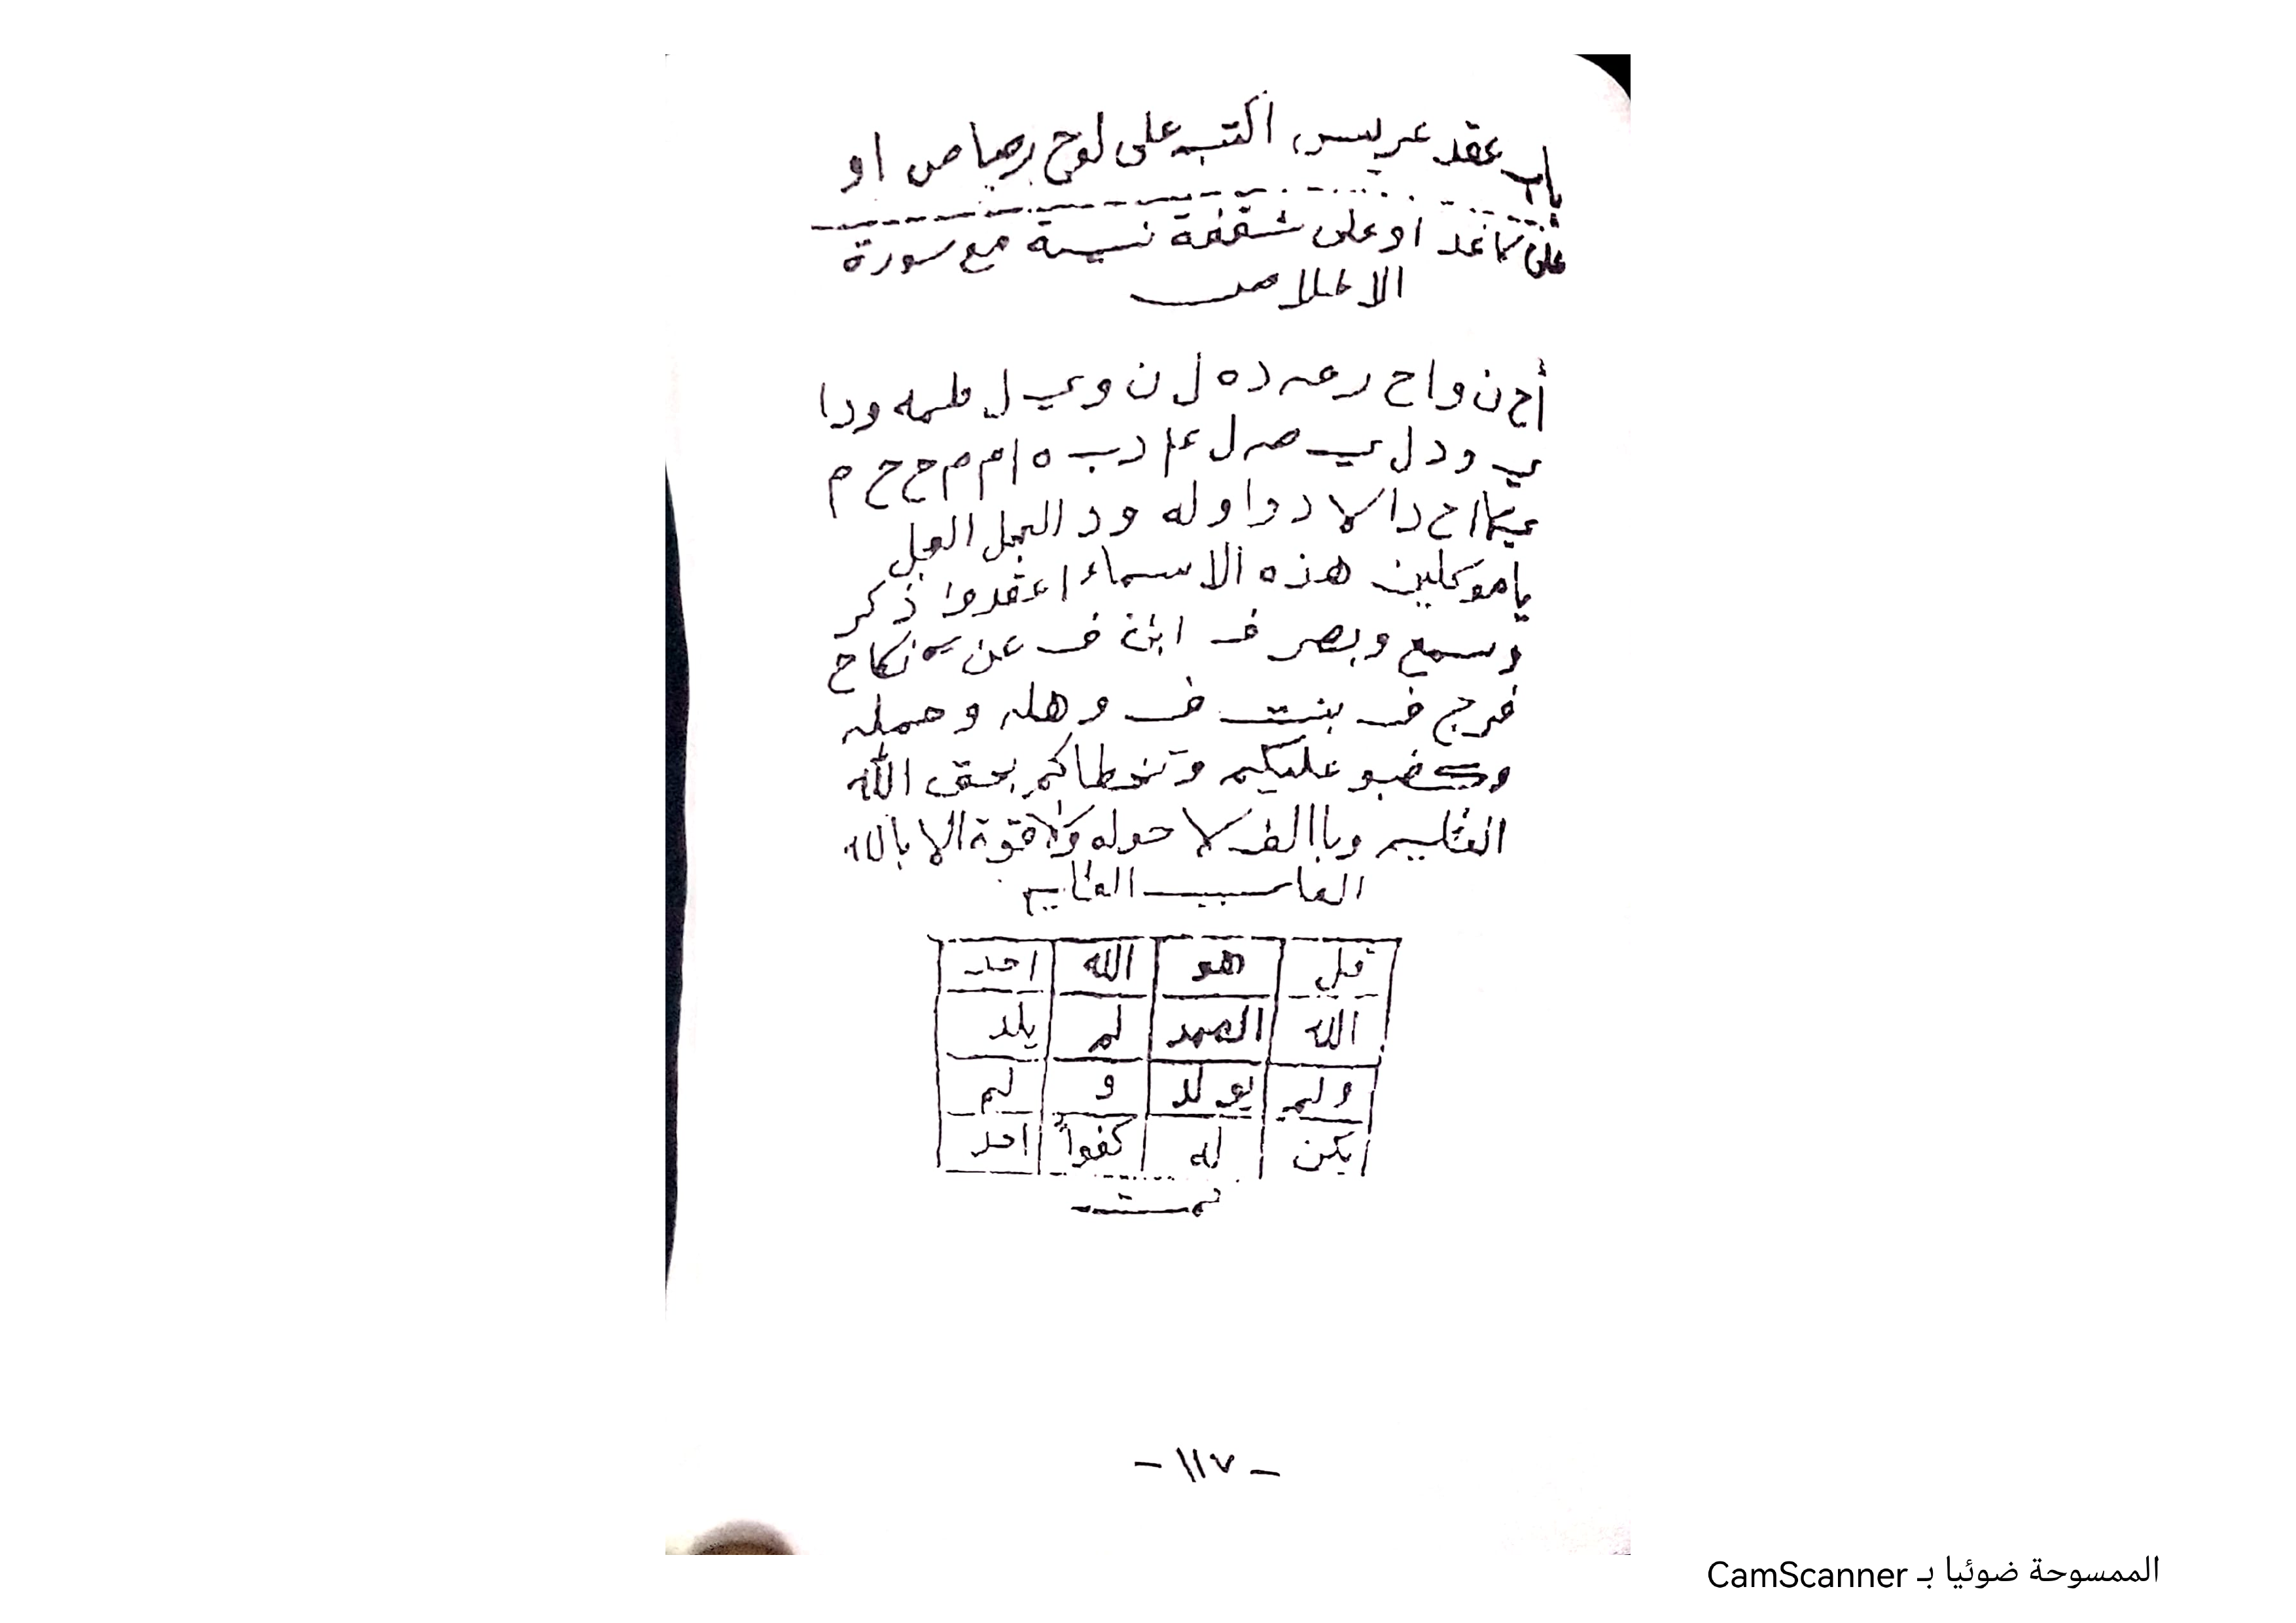 باب عقد عريس، اكتب على لوح رصاص او
على كاغد او على شقفة نسية مع سورة
الاخلاص
أ ح ن و ا ح ر عـ د ه ل ن و ي ل ودا
ي و د ل ي صـ ل د ب ه ا م م م ح ح م
ا ح د ا لا د و ا و له و د العجل العجل
يا موكلين هذه الاسماء اعقدوا ذكر
وسمع وبصر ف ابن ف عن نكاح
فرج ف بنت ف و هله و حمله
عليكم بحق الله
العظيم وباالف لا حوله ولا قوة الا بالله
العظيم
قل هو الله احد
الله الصمد لم يلد
ولم يولد و لم
يكن له كفواً احد
تمت
- ١١٧ -
الممسوحة ضوئيا بـ CamScanner